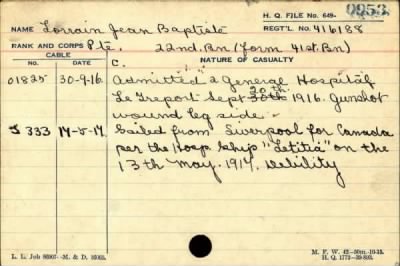 9953.
H. Q. FILE No. 649-
NAME Lorrain Jean Baptiste REGT'L No. 416188
RANK AND CORPS Pte. 22nd. Bn (form 41st. Bn)
CABLE
No. DATE NATURE OF CASUALTY
C.
01825 30-9-16. Admitted "2 General Hospital,
20th
Le Treport Sept 30th 1916. Gunshot
wound leg side.
J 333 14-5-17. Sailed from Liverpool for Canada
per the Hosp. Ship "Letitia" on the
13th May. 1917. Debility
L. L. Job 86907-M. & D. 16063.
M. F. W. 42-50m.-10-15.
H. Q. 1772-39-893.